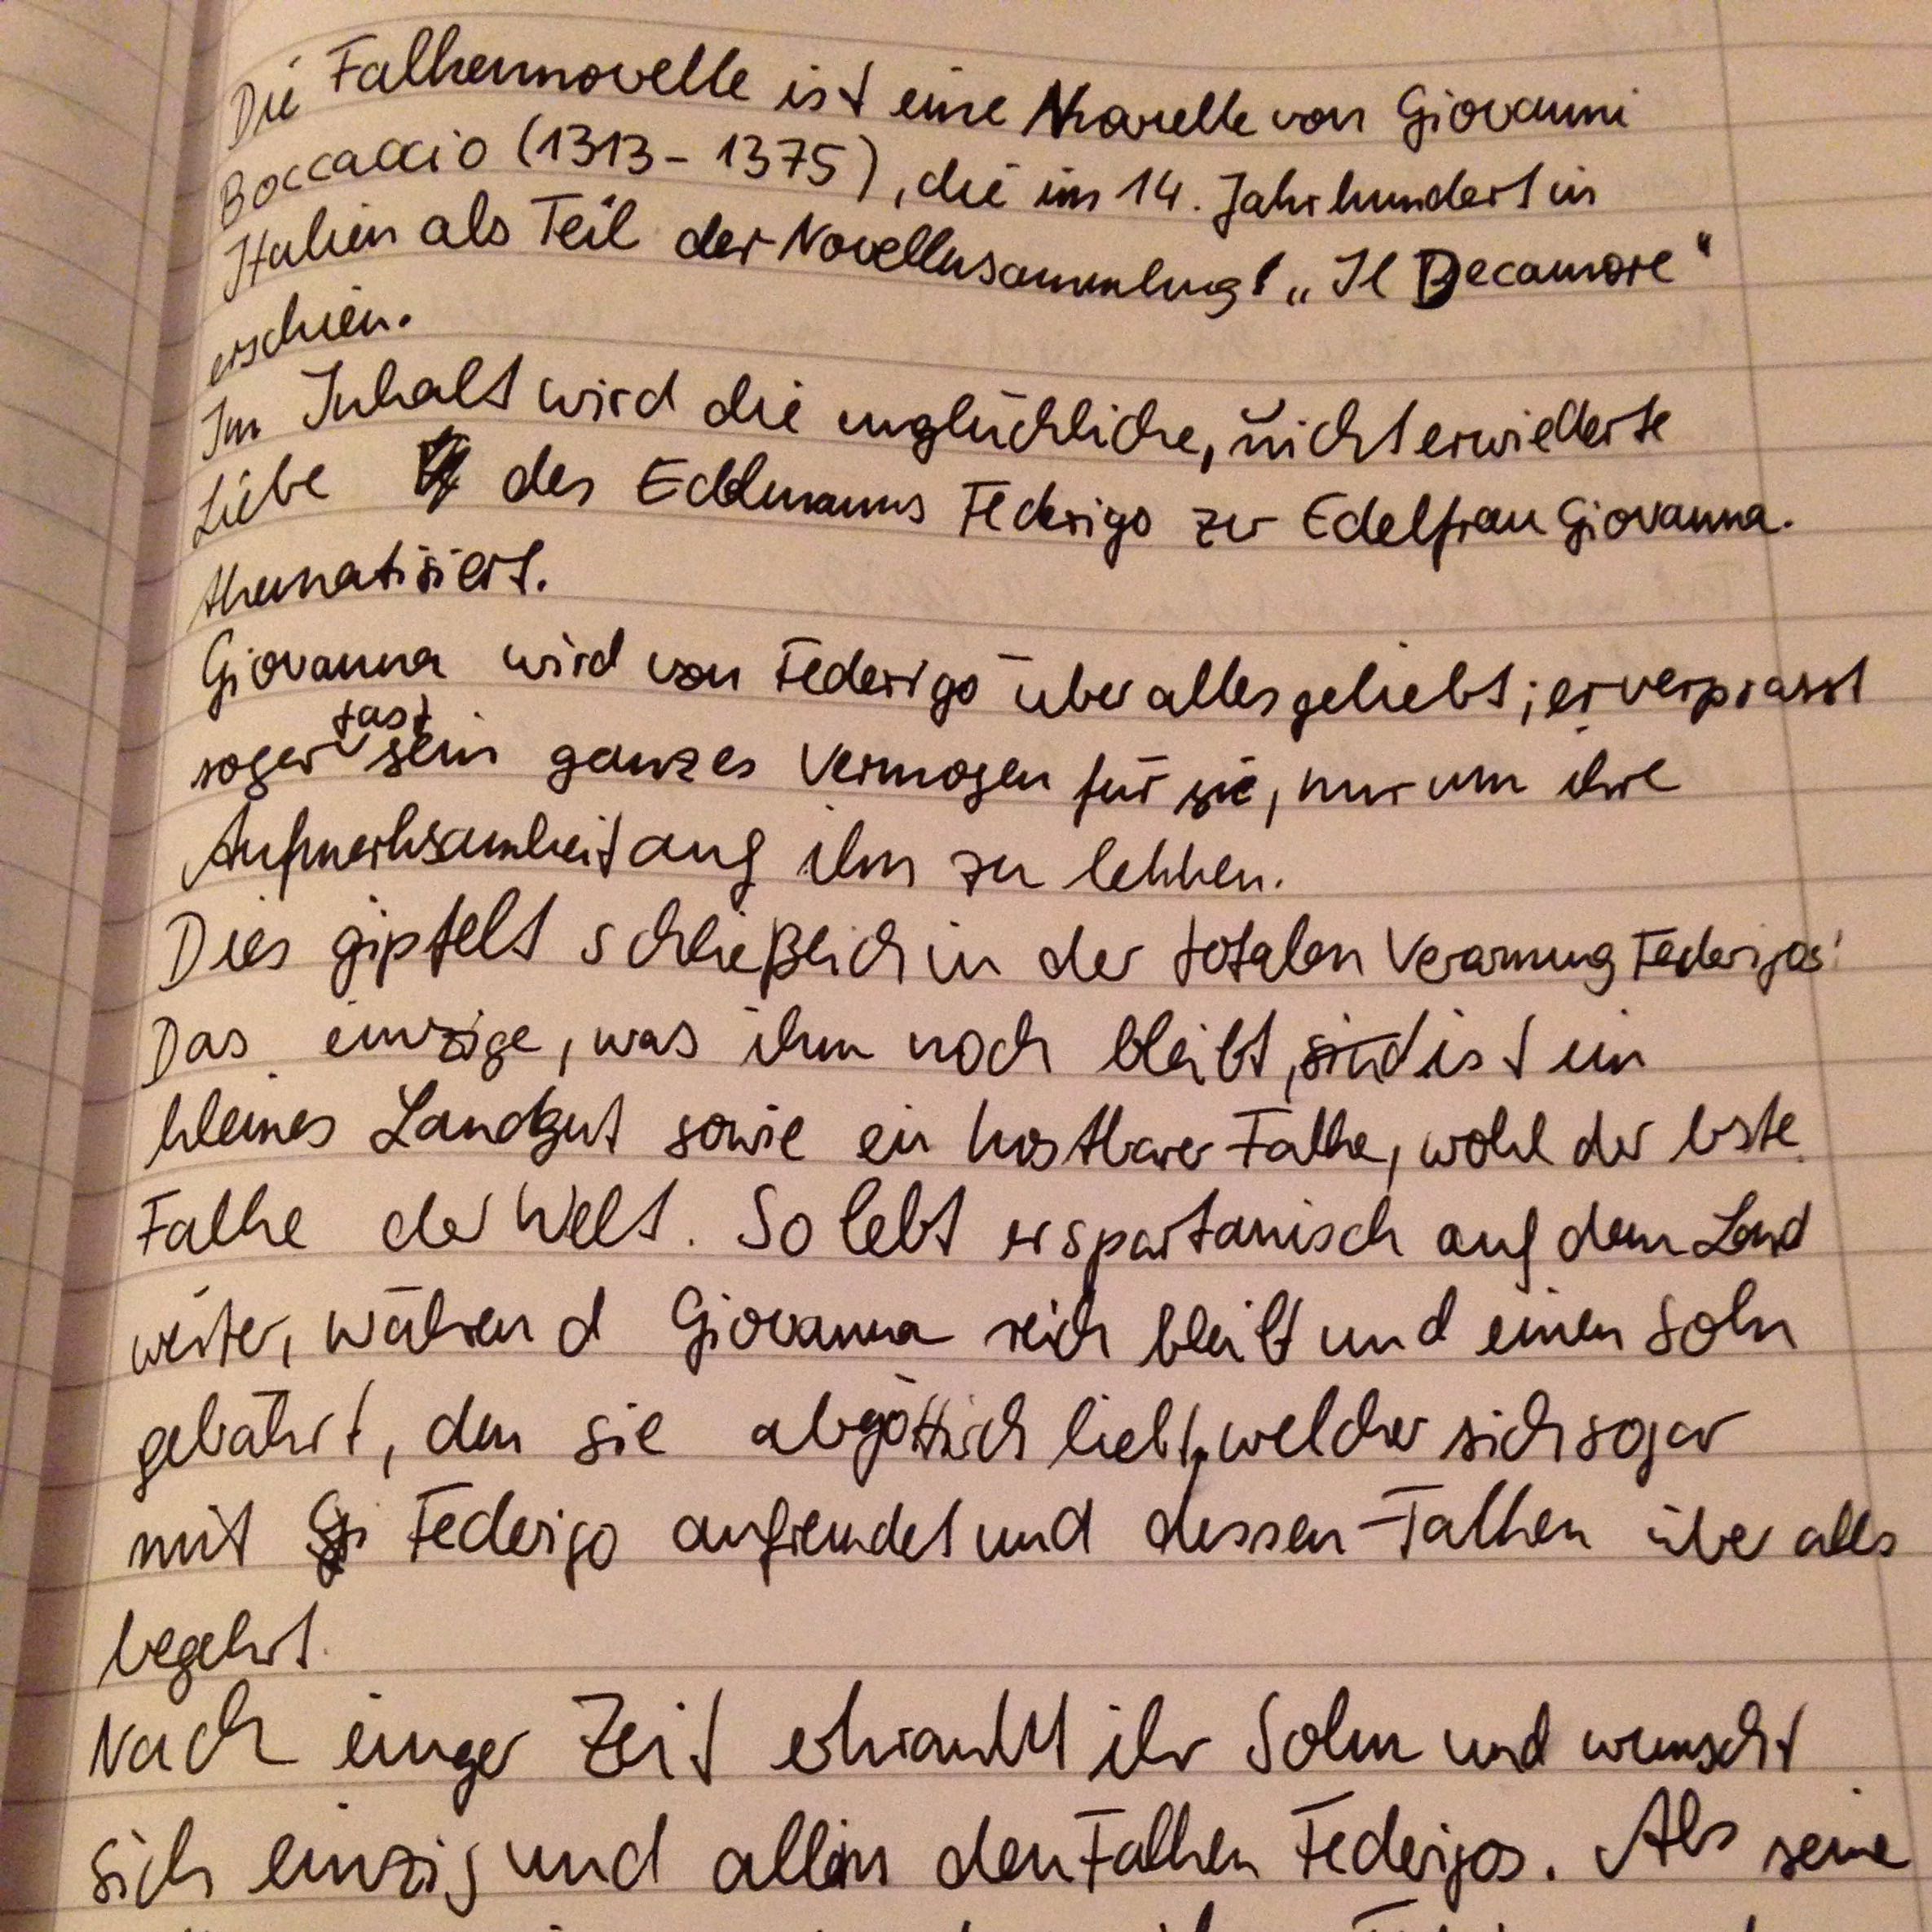 Die Falkennovelle ist eine Novelle von Giovanni
Boccaccio (1313-1375), die im 14. Jahrhundert in
Italien als Teil der Novellensammlung „Il Decamore“
erschien.
Im Inhalt wird die unglückliche, nicht erwiederte
Liebe des Edelmanns Federigo zur Edelfrau Giovanna.
thematisiert.
Giovanna wird von Federigo über alles geliebt; er verprasst
sogar fast sein ganzes Vermögen für sie, nur um ihre
Aufmerksamkeit auf ihn zu lenken.
Dies gipfelt schließlich in der totalen Verarmung Federigos:
Das einzige, was ihm noch bleibt, sind ist ein
kleines Landgut sowie ein kostbarer Falke, wohl der beste
Falke der Welt. So lebt er spartanisch auf dem Land
weiter, während Giovanna reich bleibt und einen Sohn
gebährt, den sie abgöttisch liebt, welcher sich sogar
mit Federigo anfreundet und dessen Falken über alles
begehrt.
Nach einiger Zeit erkrankt ihr Sohn und wünscht
sich einzig und allein den Falken Federigos. Als seine